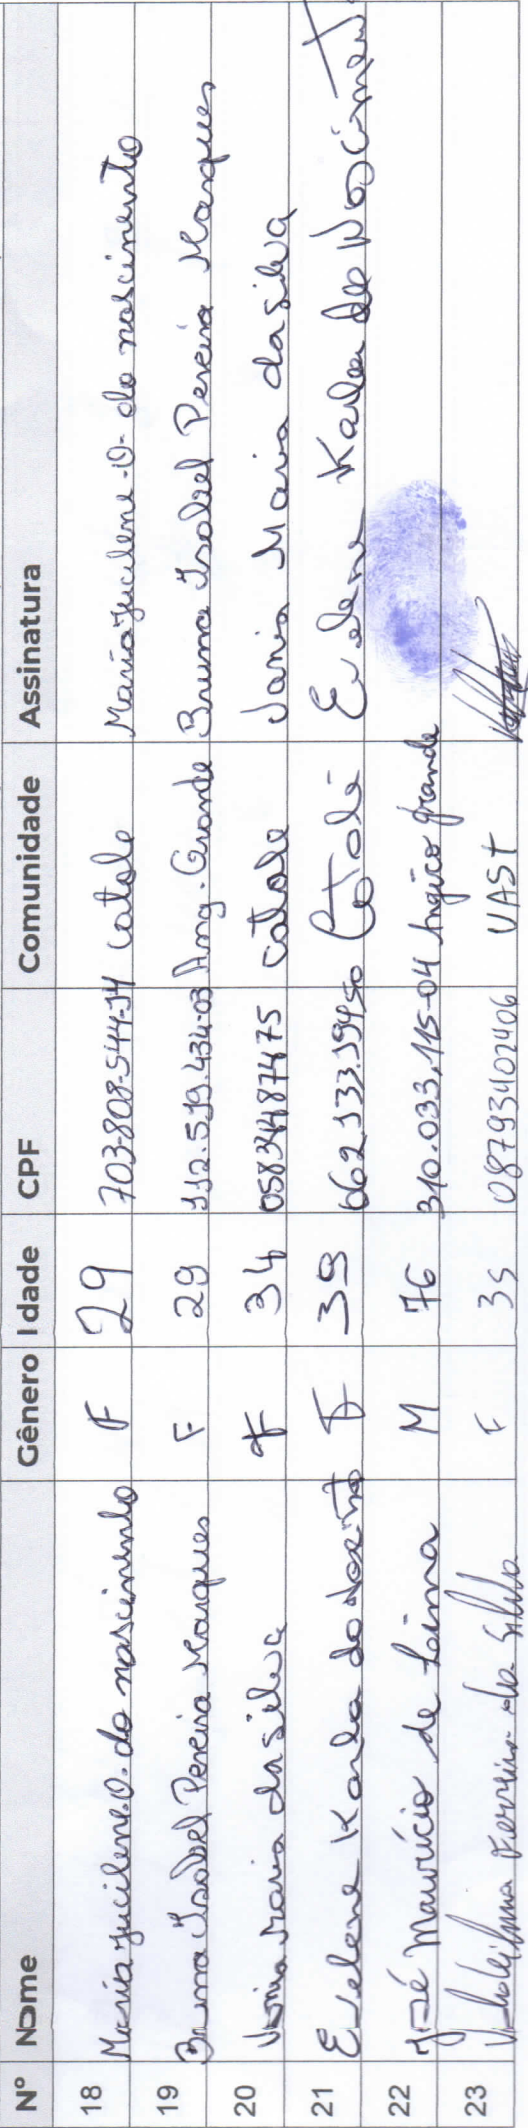 Nº Nome Gênero Idade CPF Comunidade Assinatura
18 Maria jucilene.O. do nascimento F 29 703-808-544-14 Catole Maria jucilene -O- do nascimento
19 Bruna Isabel Pereira Marques F 29 112.519.434-03 Ang. Grande Bruna Isabel Pereira Marques
20 Maria da silva F 34 Catole Maria da silva
21 Karla do F 39 Catolé Karla do Nascimento
22 José Maurício de Leima M 76 310.033.115-04 Angico grande
23 Ferreira da Silva F 35 08793402406 UAST